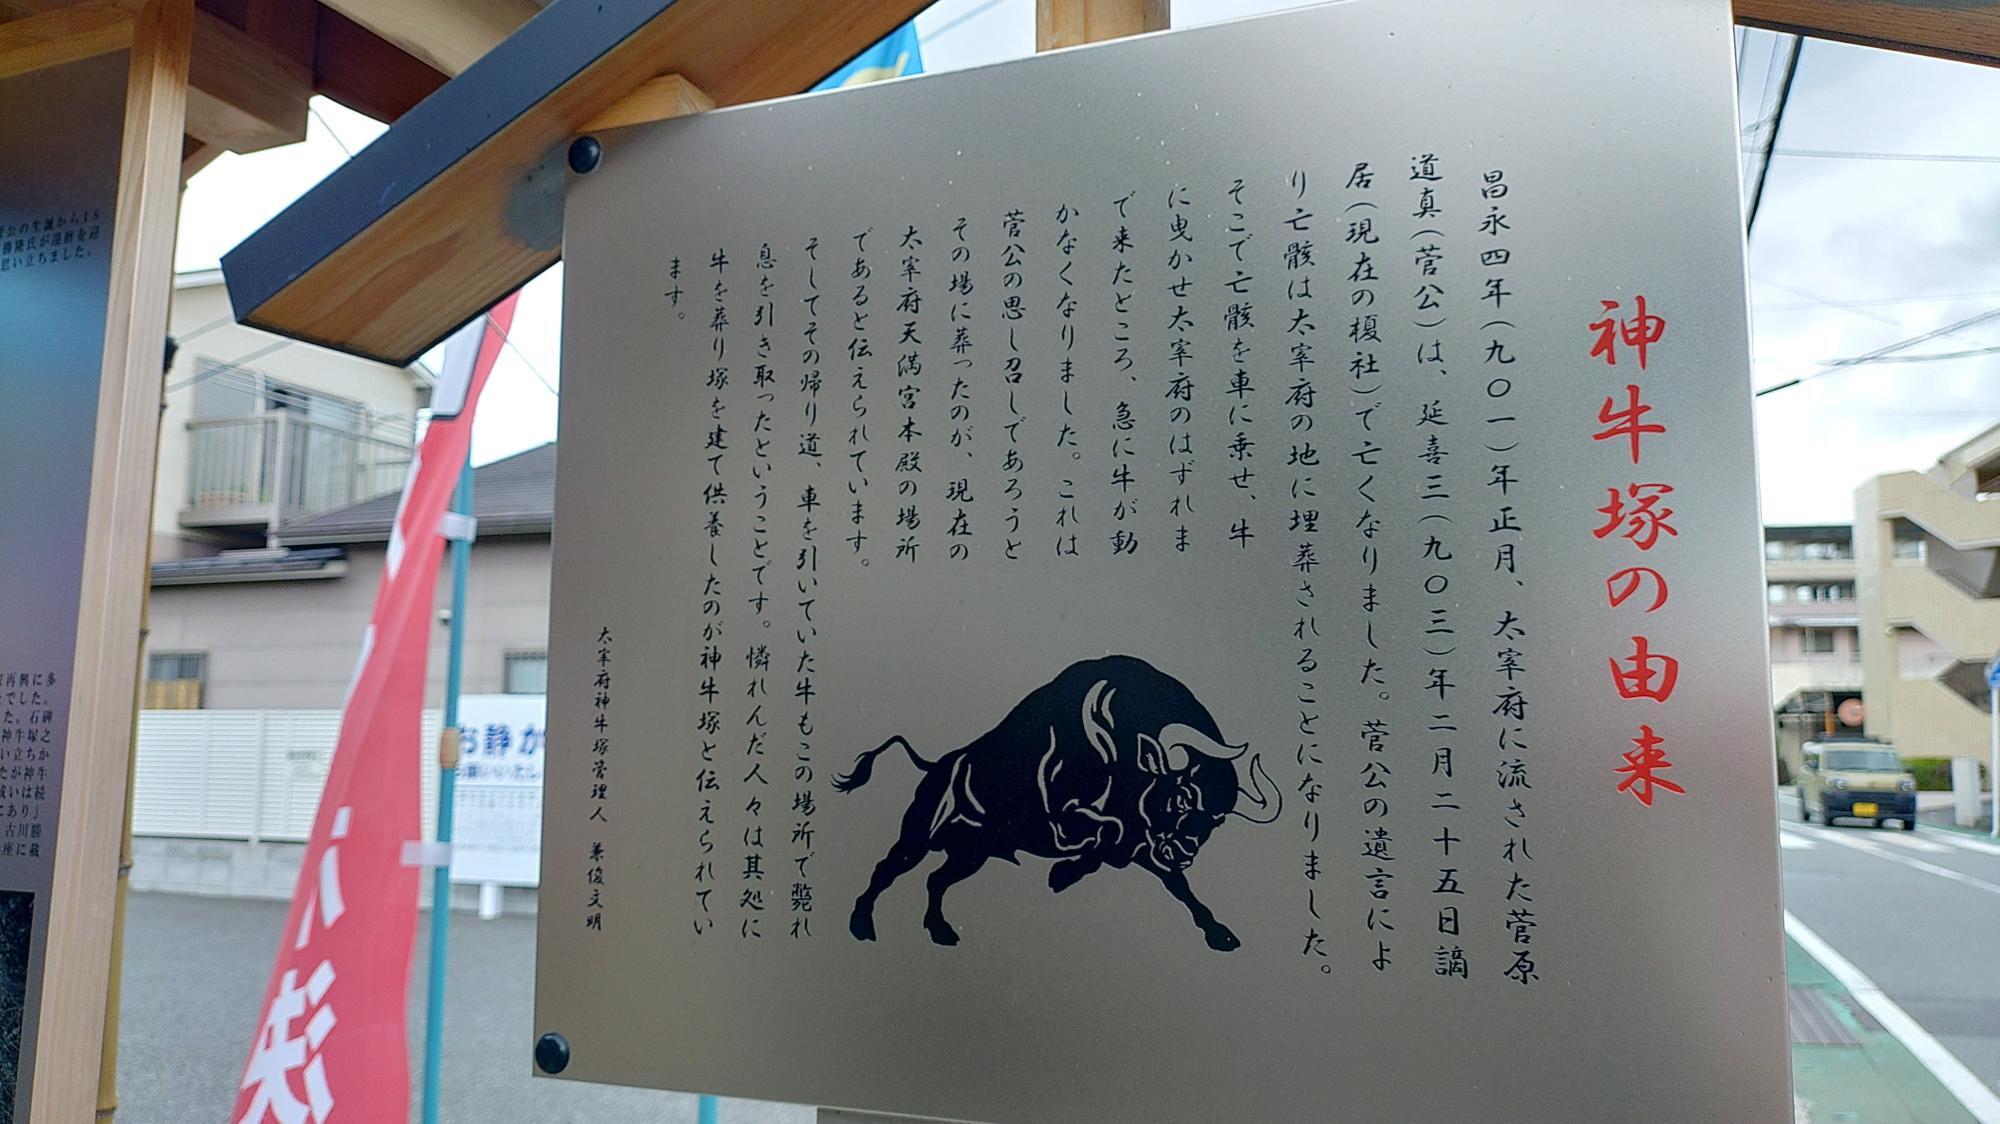 神牛塚の由来
昌永四年(九〇一)年正月、太宰府に流された菅原
道真(菅公)は、延喜三(九〇三)年二月二十五日謫
居(現在の榎社)で亡くなりました。菅公の遺言によ
り亡骸は太宰府の地に埋葬されることになりました。
そこで亡骸を車に乗せ、牛
に曳かせ太宰府のはずれま
で来たところ、急に牛が動
かなくなりました。これは
菅公の思し召しであろうと
その場に葬ったのが、現在の
太宰府天満宮本殿の場所
であると伝えられています。
そしてその帰り道、車を引いていた牛もこの場所で斃れ
息を引き取ったということです。憐れんだ人々は其処に
牛を葬り塚を建て供養したのが神牛塚と伝えられてい
ます。
太宰府神牛塚管理人 兼俊文明
菅公の生誕から18
勝隆氏が還暦を迎
思い立ちました。
再興に多
でした。
た。石碑
神牛塚之
い立ちか
たが神牛
或いは続
にあり」
古川勝
座に載
お静か
お願いいたし